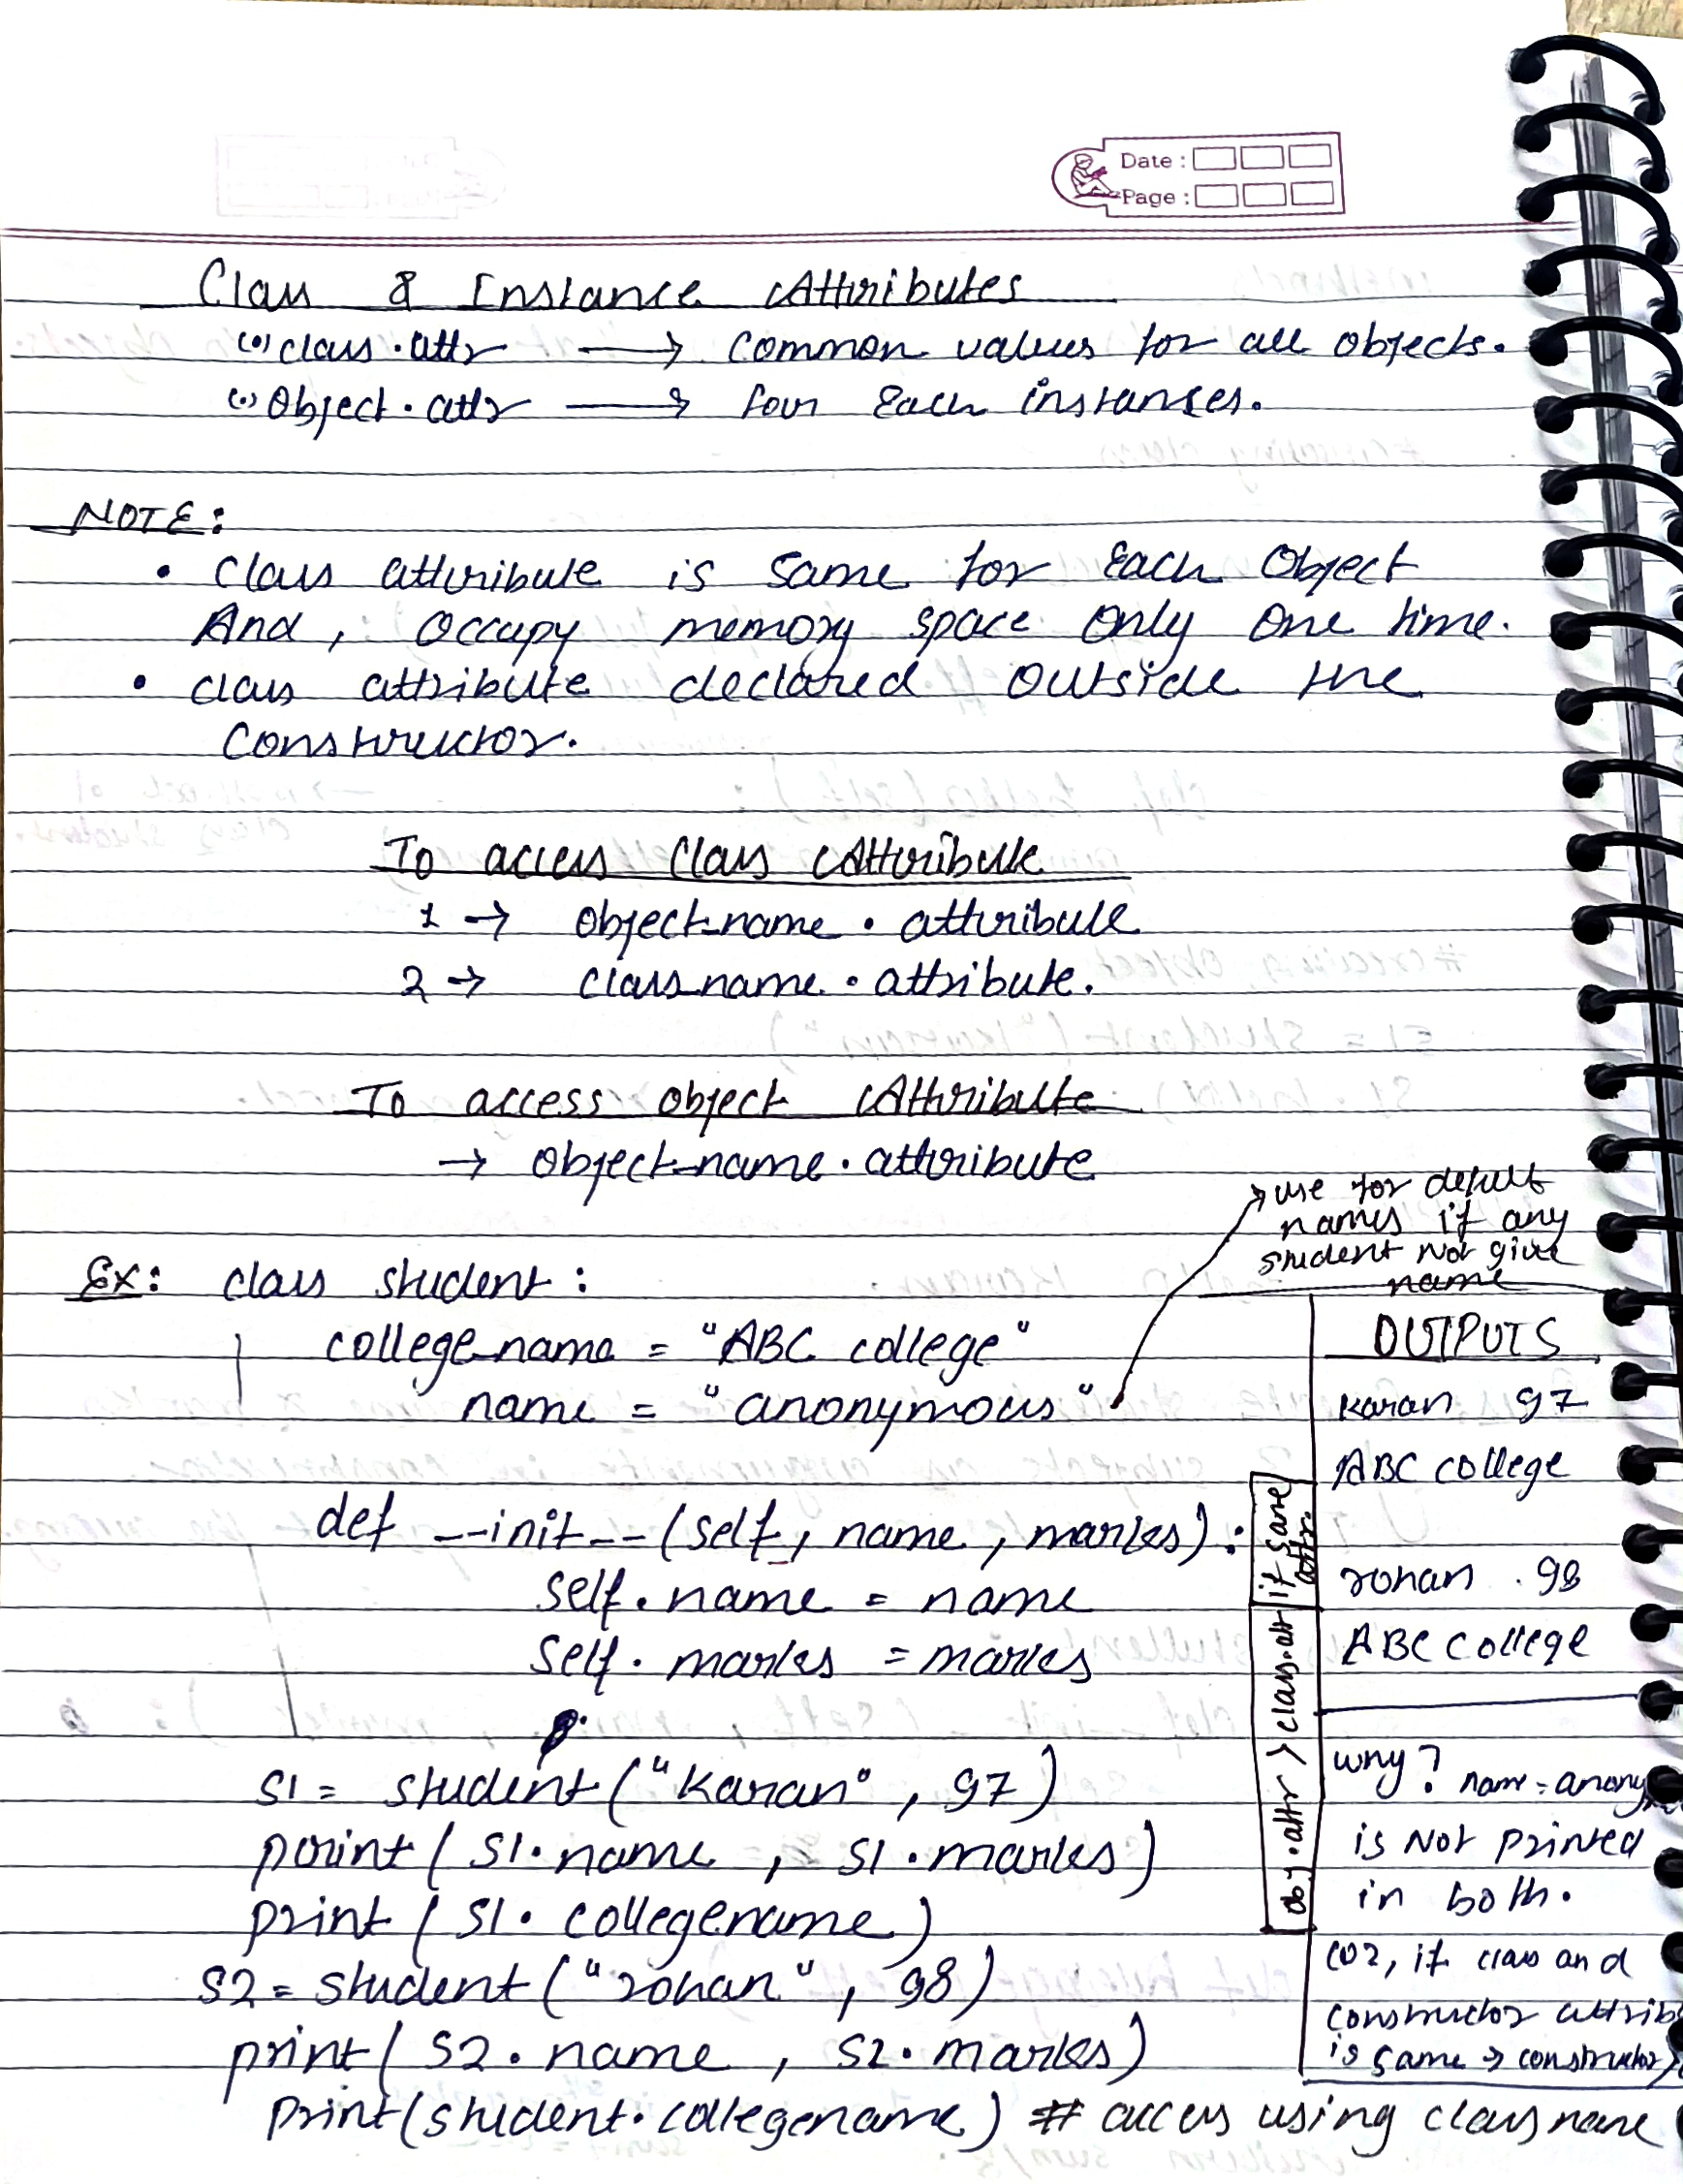 Date :
Page :
Class & Instance Attributes
(•) class . attr → common values for all objects.
(•) Object . attr → for Each instanses.
NOTE:
• Class attribute is same for Each Object
And , Occupy memory space Only One time.
• class attribute declared outside the
Constructor.
To access Class Attribute
1 → object_name . attribute
2 → class_name . attribute.
To access object Attribute
→ object_name . attribute
→ use for defult
names if any
student Not give
name
Ex: class student :
college_name = "ABC college"
name = "anonymous"
def __init__ (self, name , marks) :
self . name = name
self . marks = marks
s1 = student ("Karan" , 97)
print ( s1 . name , s1 . marks )
print ( s1 . collegename )
s2 = student ("rohan" , 98)
print ( s2 . name , s2 . marks )
print (student . collegename) # access using class name
obj . attr > class . att if same
attr.
OUTPUTS
Karan 97
ABC college
rohan . 98
ABC college
why ? name = anony
is Not printed
in both .
coz, if class and
constructor attrib
is same → constructor